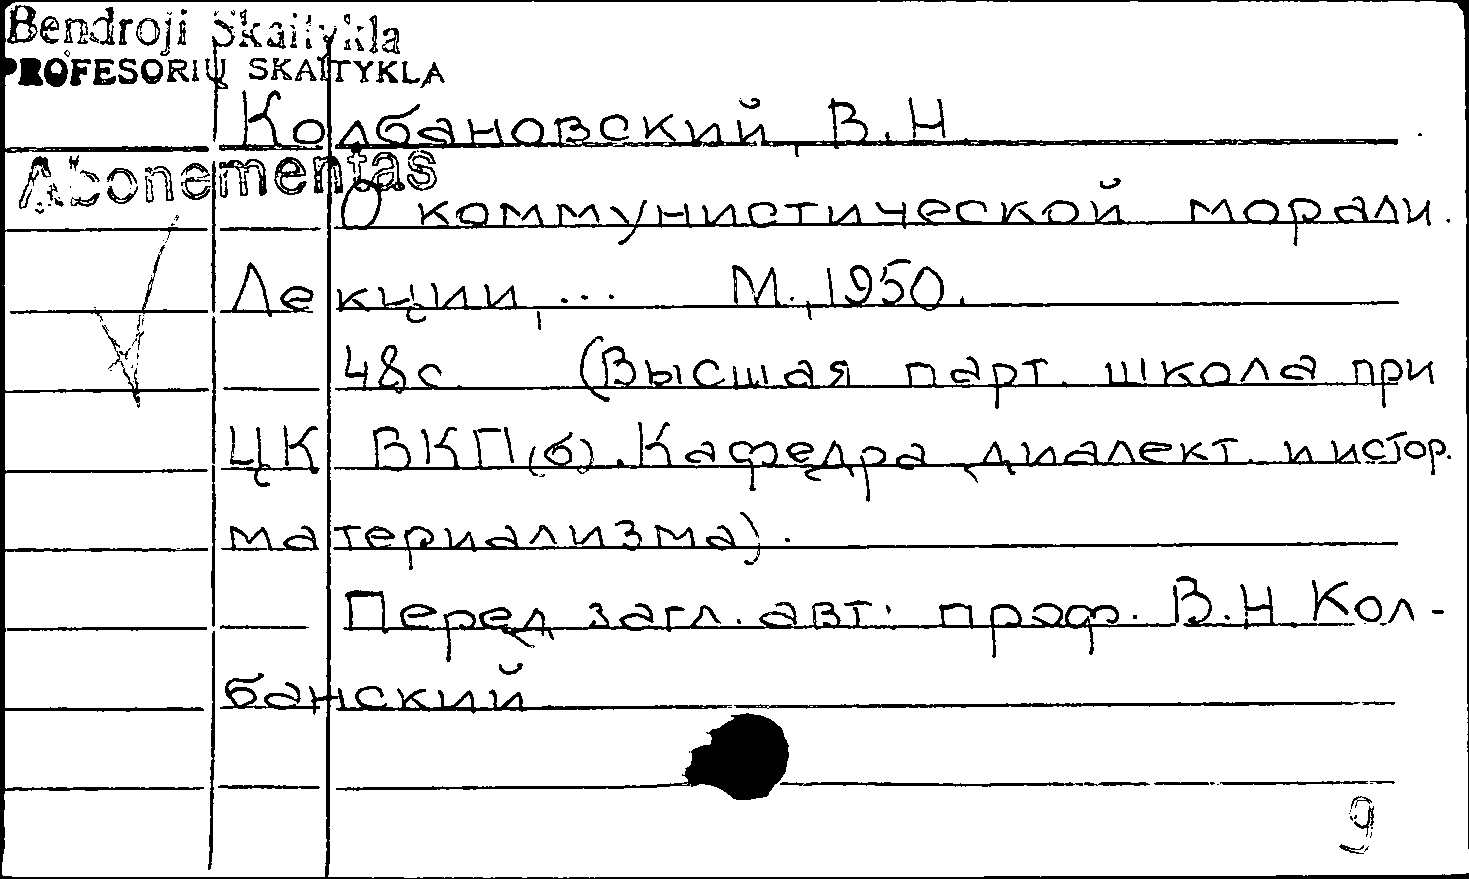 Bendroji Skaitykla
PROFESORIŲ SKAITYKLA
Колбановский, В.Н.
Abonementas
О коммунистической морали.
Лекции, ... М., 1950.
48с. (Высшая парт. школа при
ЦК ВКП(б). Кафедра диалект. и истор.
материализма).
Перед загл. авт: проф. В.Н. Кол-
банский
9